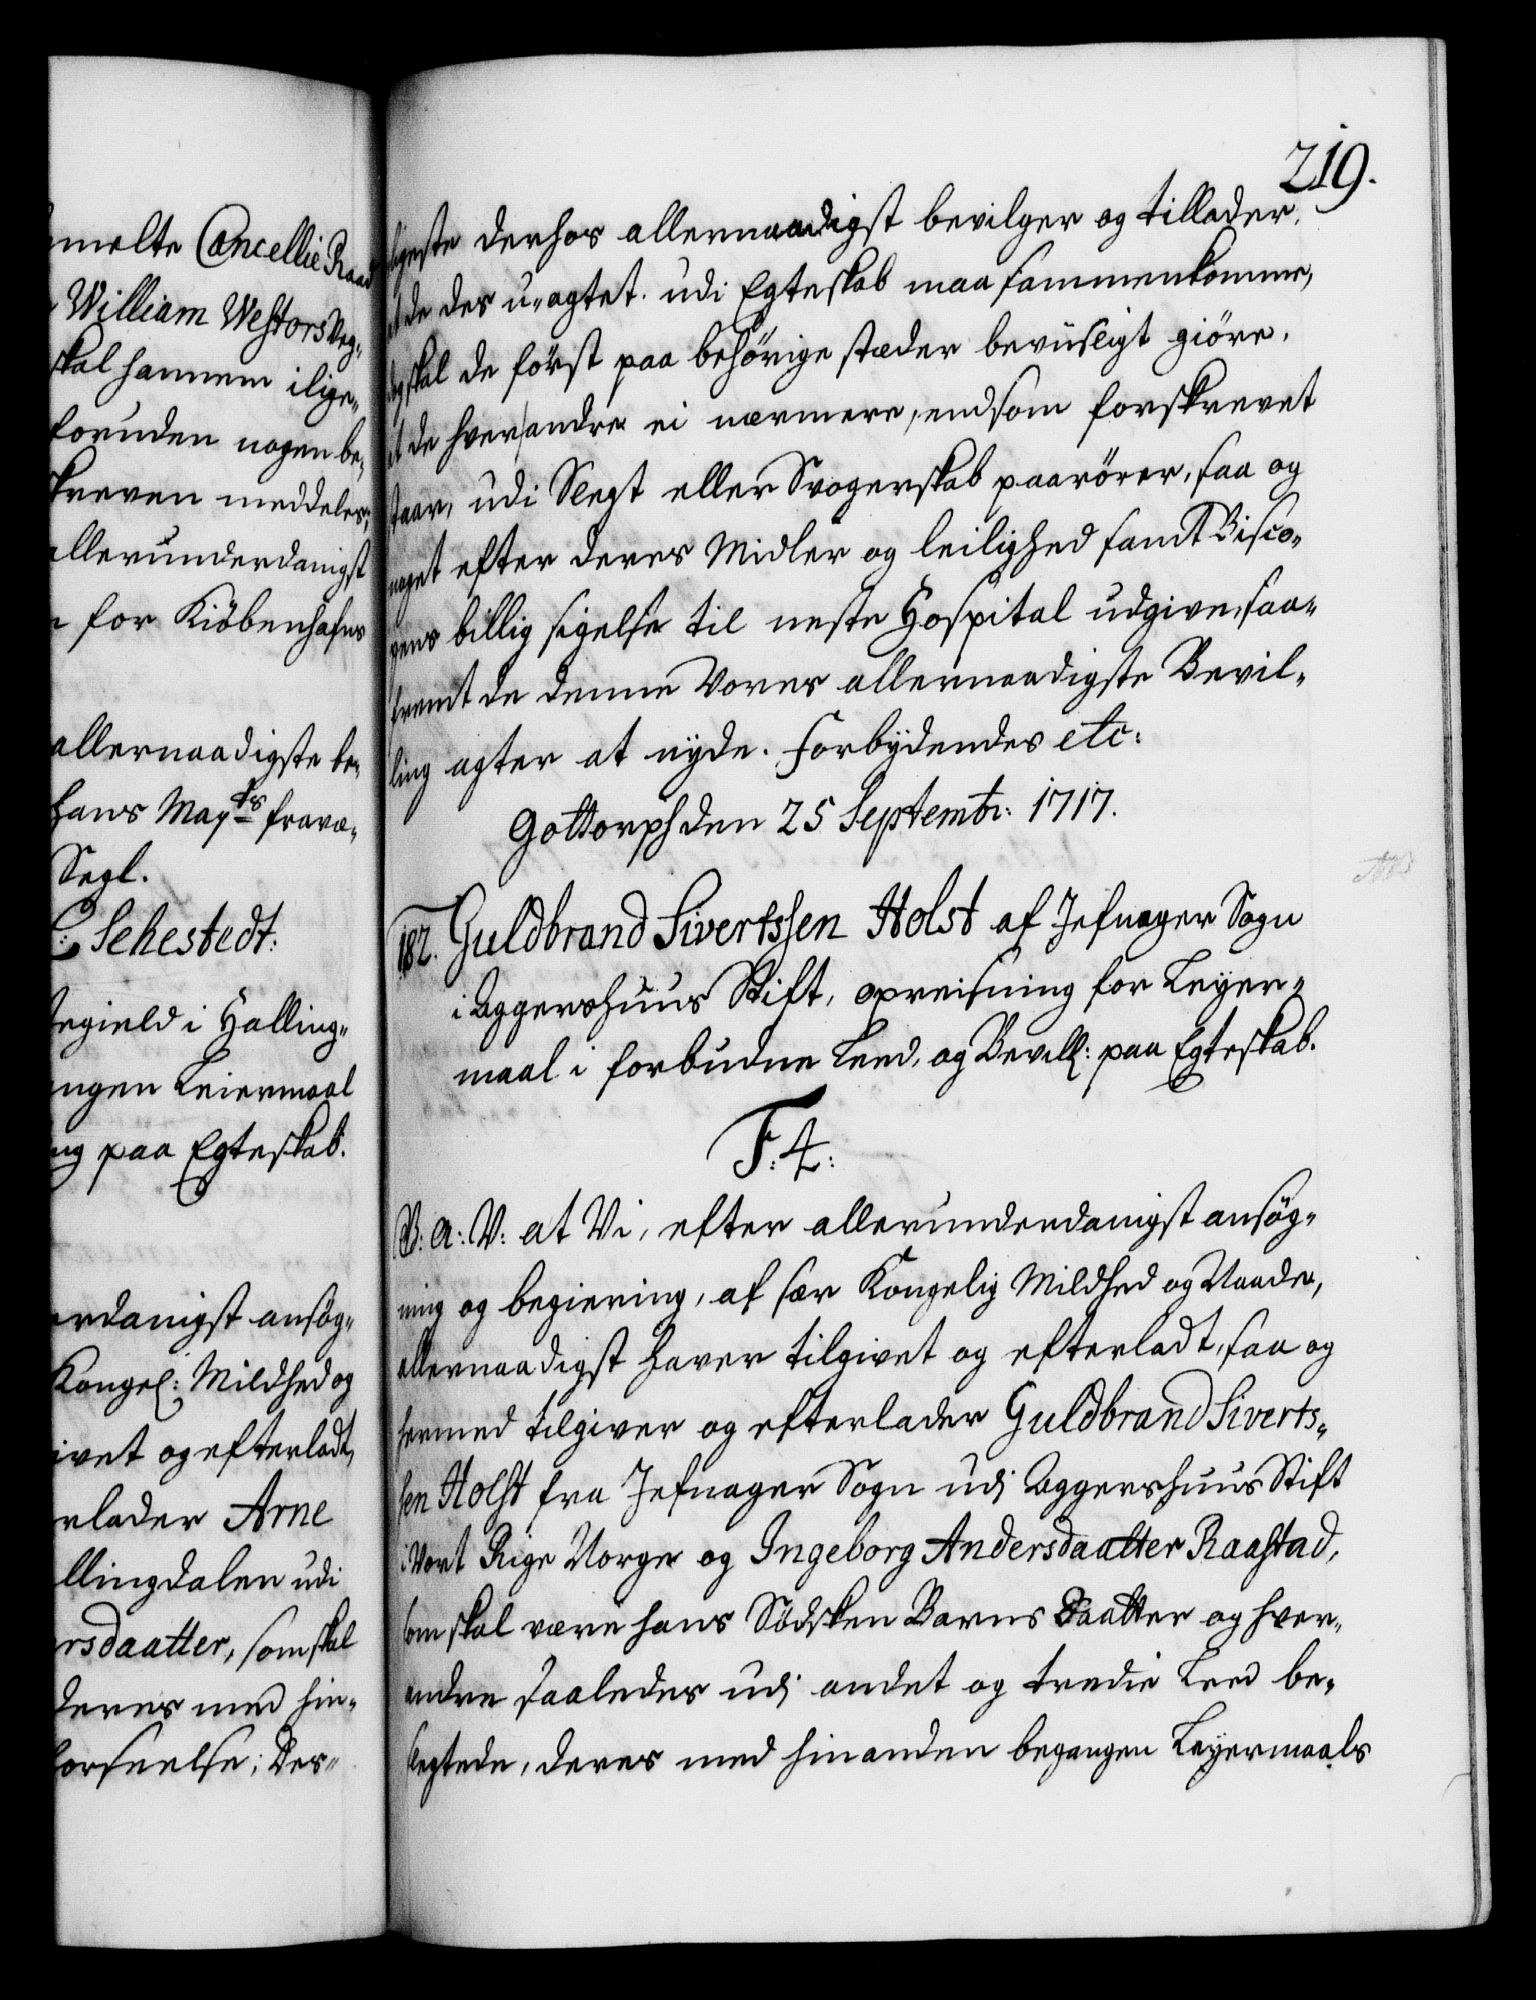 melte Cancellie Raad
William Westors Veg-
skal hannem ilige-
foruden nogen be-
skreven meddeles,
allerunderdanigst
for Kiöbenhafns
allernaadigste be-
hans Mayts fravæ-
Segl.
C: Sehestedt:
egield i Halling-
ngen Leiermaal
ng paa Egteskab.
erdanigst ansøg-
Kongel: Mildhed og
ivet og efterladt,
rlader Arne
llingdalen udi
rsdaatter, som skal
deres med hin-
forseelse; Des-
219.
ligeste derhos allernaadigst bevilger og tillader,
at de des u-agtet udi Egteskab maa sammenkomme,
dog skal de först paa behörige stæder beviisligt giöre,
at de hverandre ei nærmere, end som forskrevet
staar, udi Slegt eller Svogerskab paarörer, saa og
noget efter deres Midler og leilighed samt Bisco-
pens billig sigelse til neste Hospital udgive, saa-
fremt de denne Vores allernaadigste Bevil-
ling agter at nyde. Forbydendes etc:
Gottorph den 25 Septembr: 1717.
182. Guldbrand Sivertssen Holst af Jefnager Sogn
i Aggershuus Stift, opreisning for Leyer-
maal i forbudne Leed, og Bevill: paa Egteskab.
F: 4:
V: A: V: at Vi, efter allerunderdanigst ansøg-
ning og begiering, af sær Kongelig Mildhed og Naade,
allernaadigst haver tilgivet og efterladt, saa og
hermed tilgiver og efterlader Guldbrand Siverts-
sen Holst fra Jefnager Sogn udi Aggershuus Stift
i Vort Rige Norge og Ingeborg Andersdaatter Raastad,
som skal være hans Södsken Barns Daatter og hver-
andre saaledes udi andet og tredie Leed be-
slegtede, deres med hinanden begangen Leyermaals